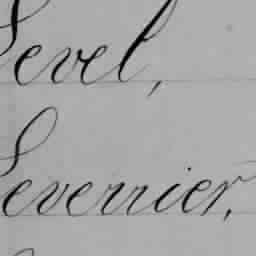 Level,
Leverrier,